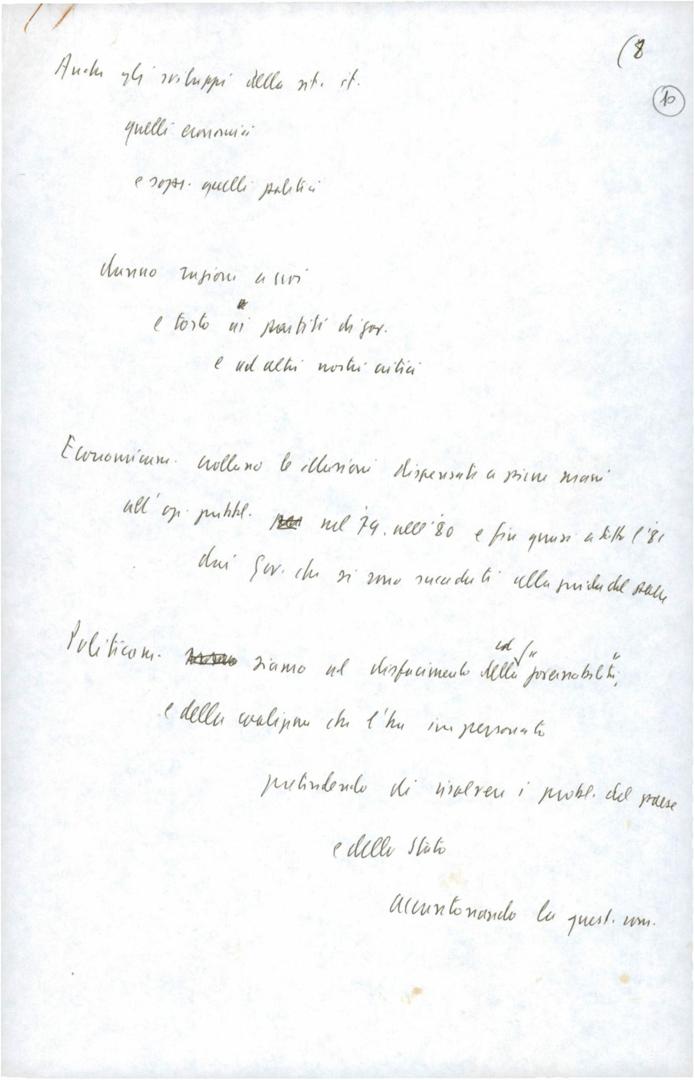 (8
10
Anche gli sviluppi della sit. it.
quelli economici
e sopr. quelli politici
danno ragione a noi
e torto ai partiti di gov.
e ad altri nostri critici
Economicam. crollano le illusioni dispensate a piene mani
all'op. pubbl. nel '79, nell'80 e fin quasi a tutto l'81
dai Gov. che si sono succeduti alla guida del paese
Politicam. siamo al disfacimento della cd. "governabilità",
e della coalizione che l'ha impersonato
pretendendo di risolvere i probl. del paese
e dello Stato
accantonando la quest. com.